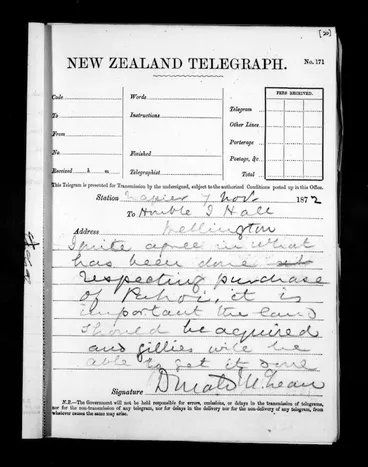 [20]
NEW ZEALAND TELEGRAPH. No. 171
Code Words FEES RECEIVED.
To Instructions Telegram
From Other Lines
No. Finished Porterage
Received h m Telegraphist Postage, &c.
Total
This Telegram is presented for Transmission by the undersigned, subject to the authorized Conditions posted up in this Office.
Station Napier 7 Nov. 1872
To Honble J Hall
Address Wellington
I quite agree in what
has been done
respecting purchase
of it is
important the land
should be acquired
and Gillies will be
able to get it done
Signature Donald McLean
N.B.—The Government will not be held responsible for errors, omissions, or delays in the transmission of telegrams,
nor for the non-transmission of any telegram, nor for delays in the delivery nor for the non-delivery of any telegram, from
whatever causes the same may arise.